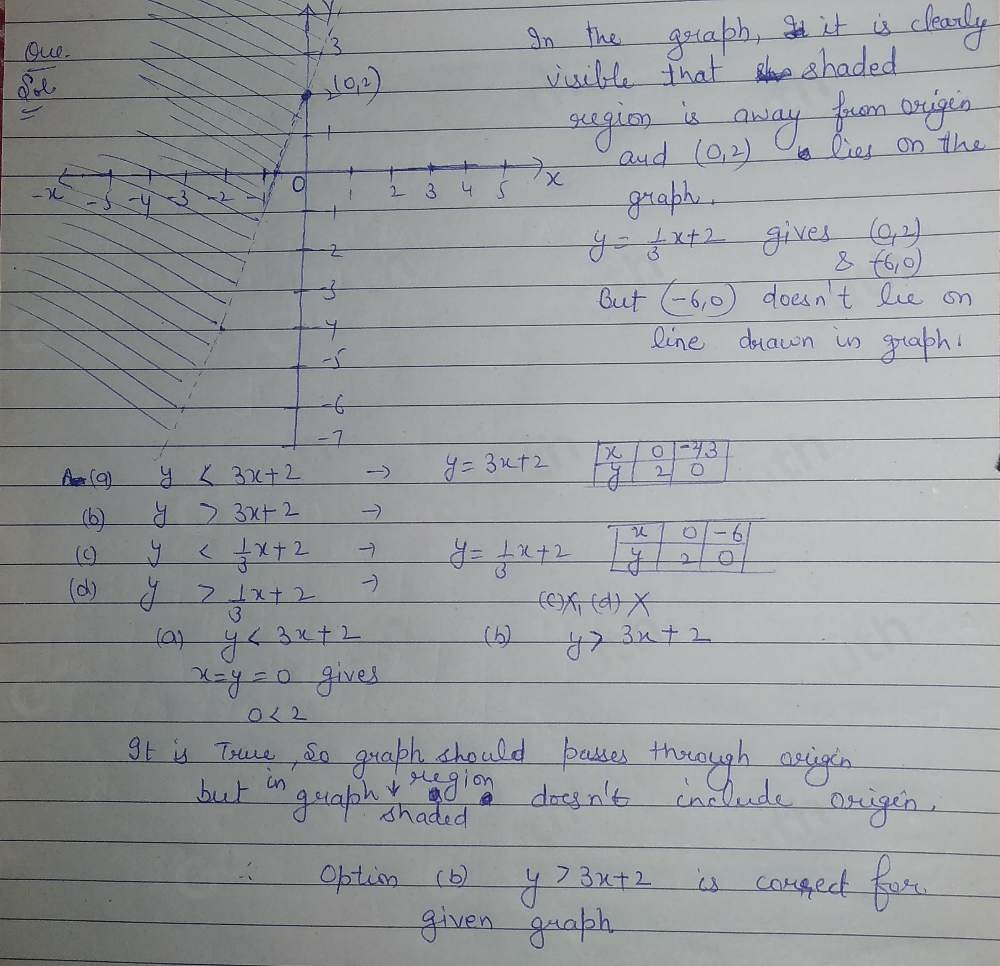 Que.
Sol
In the graph, it is clearly
visible that shaded
region is away from origin
and (0,2) lies on the
graph.
y = 1/3 x+2 gives (0,2)
& (-6,0)
But (-6,0) doesn't lie on
line drawn in graph.
Y
3
2 (0,2)
1
-x -5 -4 -3 -2 -1 0 1 2 3 4 5 x
-1
-2
-3
-4
-5
-6
-7
(a) y < 3x+2 → y = 3x+2 x 0 -2/3
y 2 0
(b) y > 3x+2 →
(c) y < 1/3 x+2 → y = 1/3 x+2 x 0 -6
y 2 0
(d) y > 1/3 x+2 →
(c)X, (d) X
(a) y < 3x+2 (b) y > 3x+2
x=y=0 gives
0<2
It is True, So graph should passes through origin
but in graph shaded region doesn't include origin.
∴ Option (b) y > 3x+2 is correct for
given graph